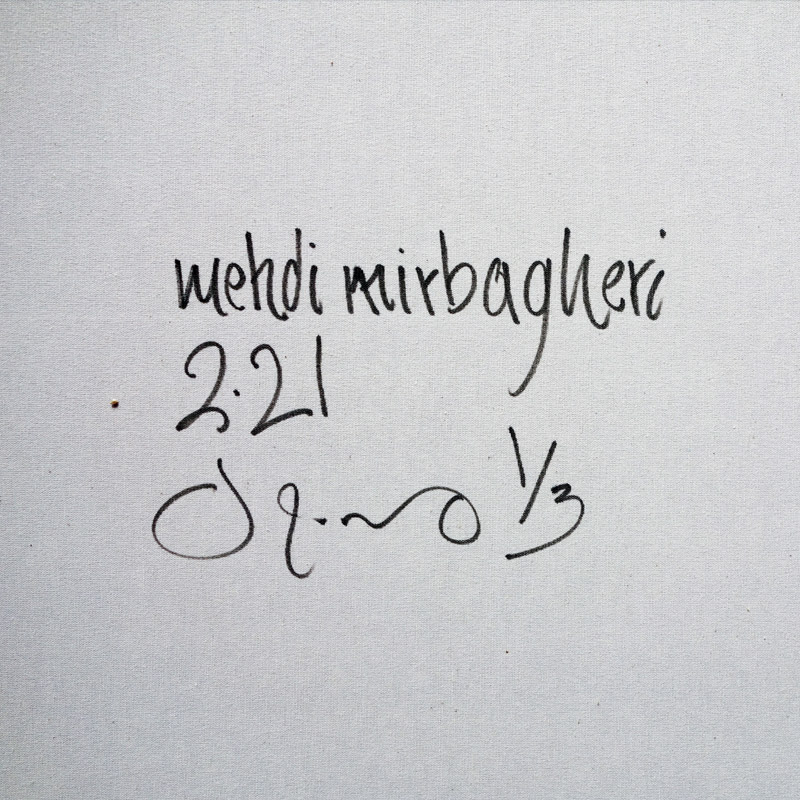 mehdi mirbagheri
2.21
1/3